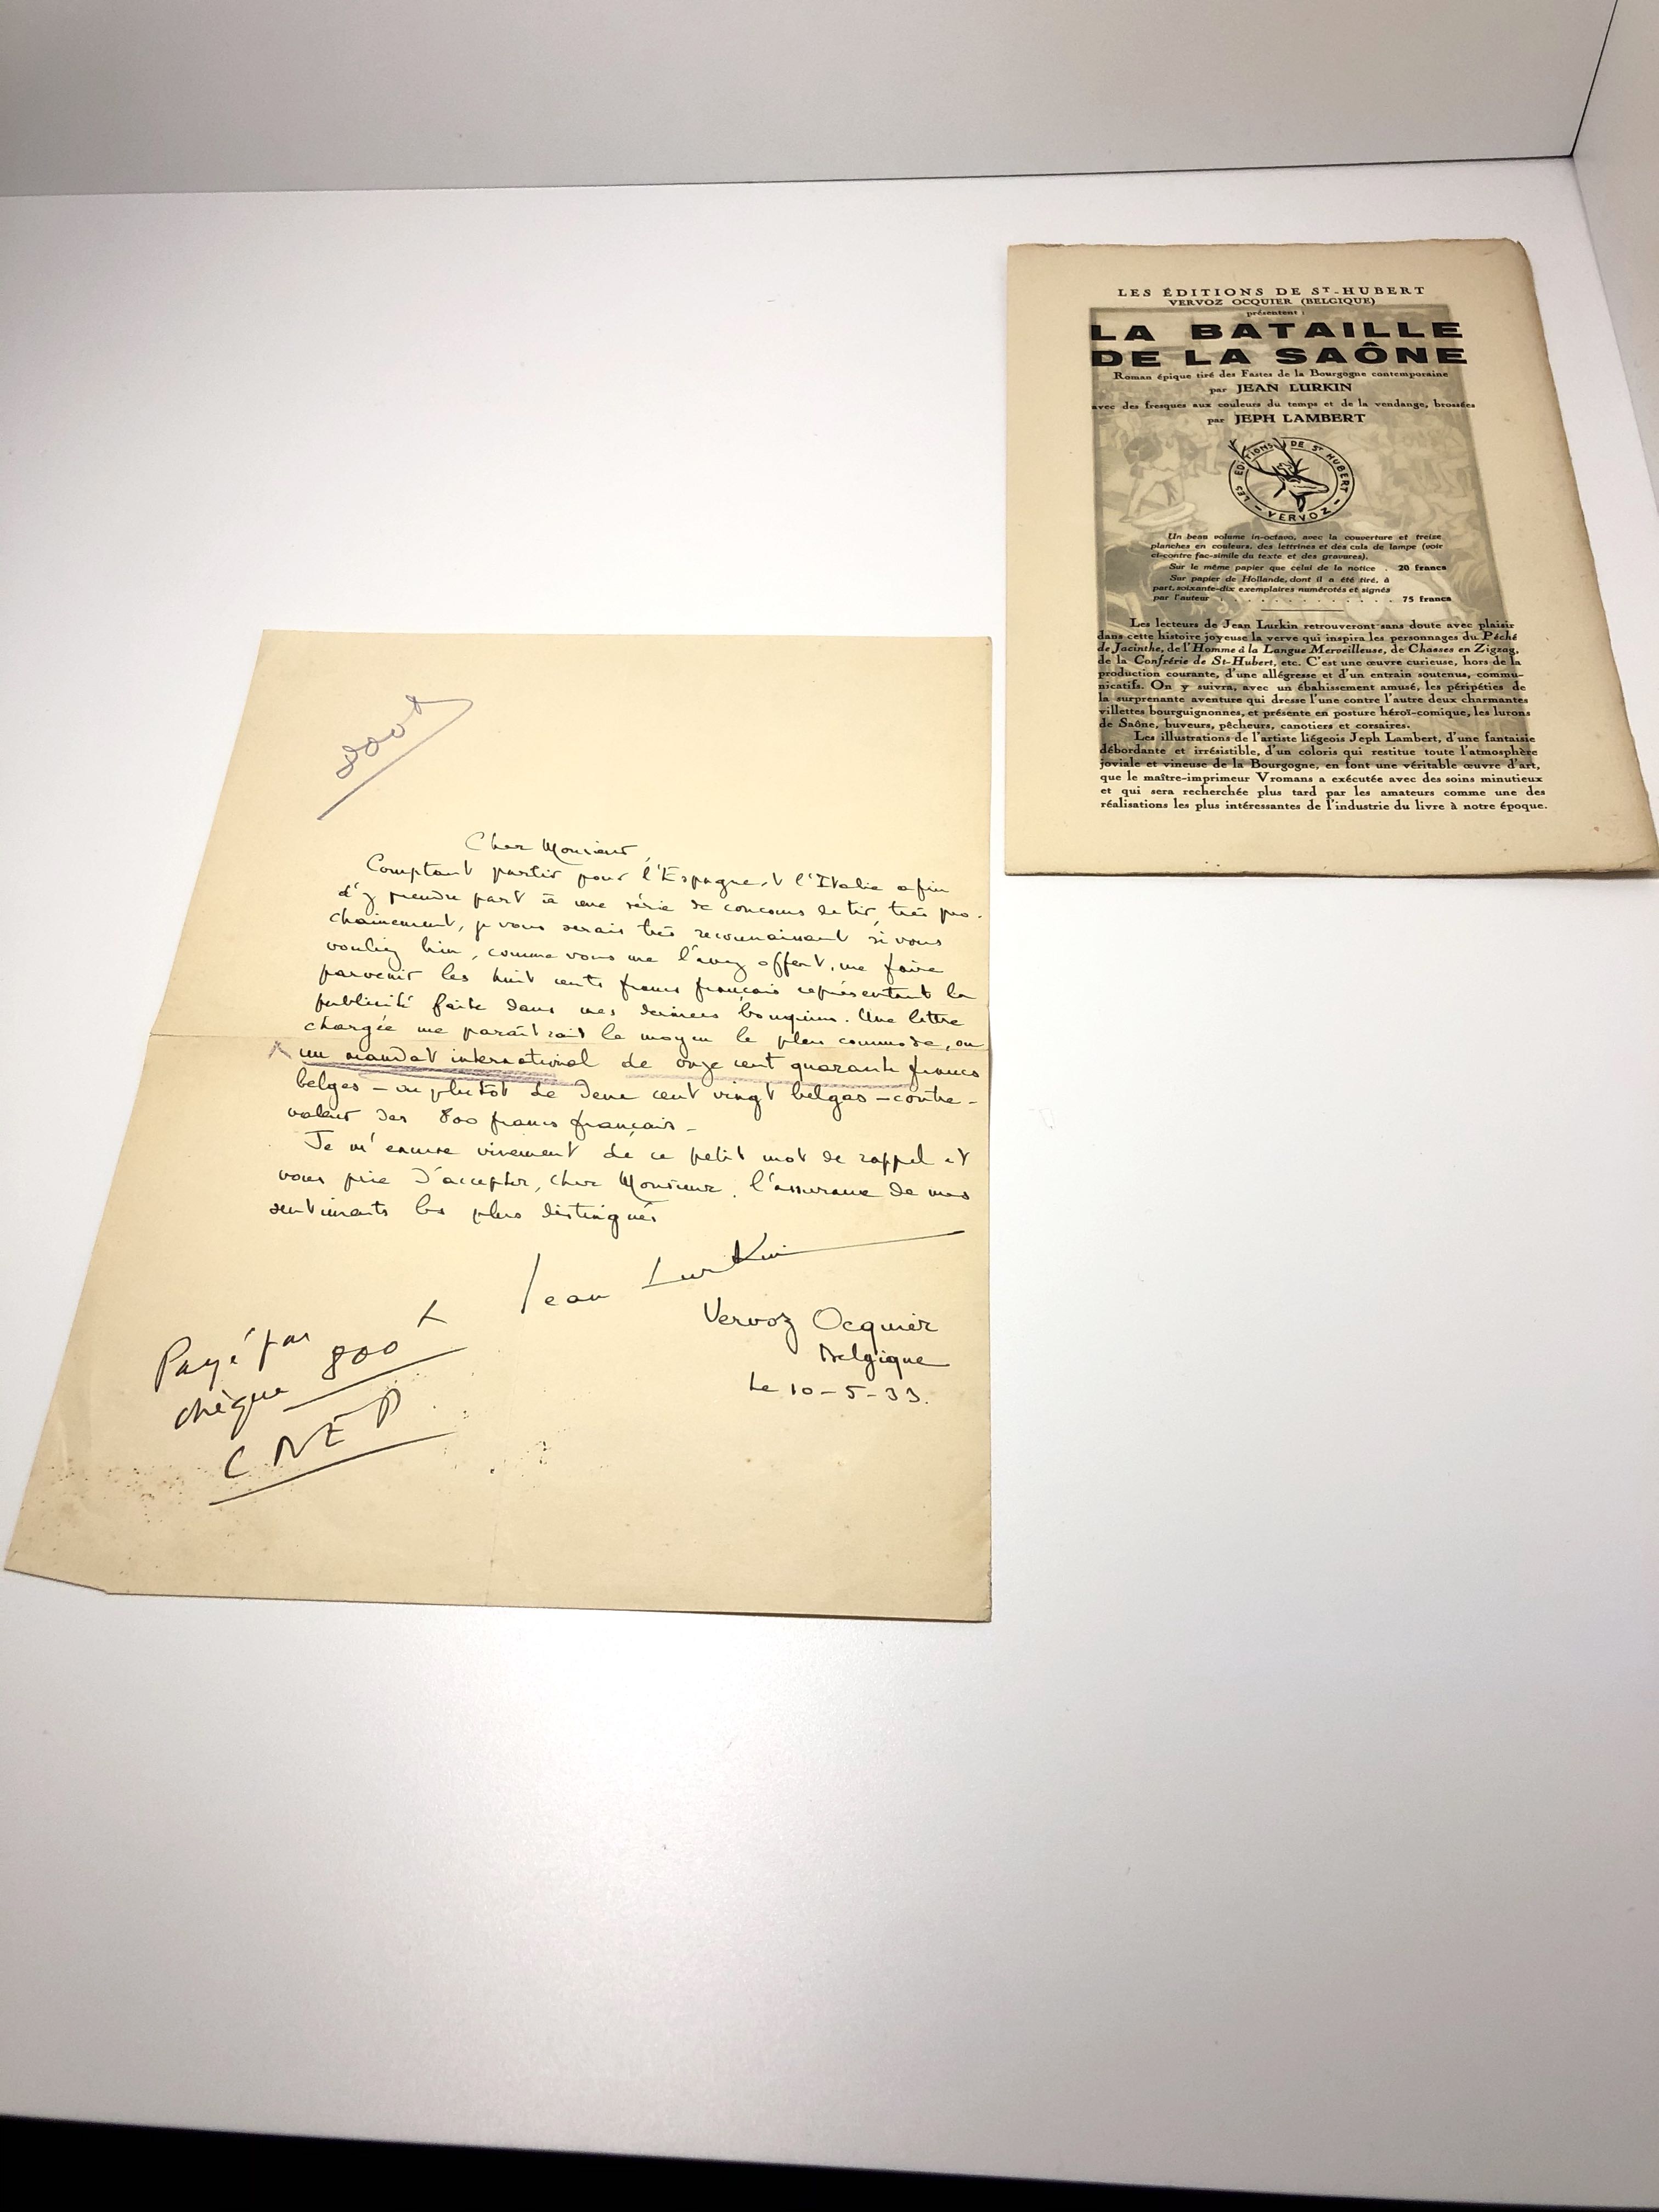 800
Cher Monsieur,
Comptant partir pour l'Espagne et l'Italie afin
d'y prendre part à une série de concours de tir, très pro-
chainement, je vous serais très reconnaissant si vous
vouliez bien, comme vous me l'avez offert, me faire
parvenir les huit cents francs français représentant la
publicité faite dans mes derniers bouquins. Une lettre
chargée me paraîtrait le moyen le plus commode, ou
un mandat international de onze cent quarante francs
belges – ou plutôt de deux cent vingt belgas – contre-
valeur des 800 francs français –
Je m'excuse vivement de ce petit mot de rappel et
vous prie d'accepter, cher Monsieur, l'assurance de mes
sentiments les plus distingués
Jean Lurkin
Vervoz Ocquier
Belgique
Le 10-5-33.
Payé par
chèque 800
CNEP
LES ÉDITIONS DE ST-HUBERT
VERVOZ OCQUIER (BELGIQUE)
présentent :
LA BATAILLE
DE LA SAÔNE
Roman épique tiré des Fastes de la Bourgogne contemporaine
par JEAN LURKIN
avec des fresques aux couleurs du temps et de la vendange, brossées
par JEPH LAMBERT
LES EDITIONS DE ST HUBERT
– VERVOZ –
Un beau volume in-octavo, avec la couverture et treize
planches en couleurs, des lettrines et des culs de lampe (voir
ci-contre fac-simile du texte et des gravures).
Sur le même papier que celui de la notice . 20 francs
Sur papier de Hollande, dont il a été tiré, à
part, soixante-dix exemplaires numérotés et signés
par l'auteur . . . . . . . . . . . 75 francs
Les lecteurs de Jean Lurkin retrouveront sans doute avec plaisir
dans cette histoire joyeuse la verve qui inspira les personnages du Péché
de Jacinthe, de l'Homme à la Langue Merveilleuse, de Chasses en Zigzag,
de la Confrérie de St-Hubert, etc. C'est une œuvre curieuse, hors de la
production courante, d'une allégresse et d'un entrain soutenus, commu-
nicatifs. On y suivra, avec un ébahissement amusé, les péripéties de
la surprenante aventure qui dresse l'une contre l'autre deux charmantes
villettes bourguignonnes, et présente en posture héroï-comique, les lurons
de Saône, buveurs, pêcheurs, canotiers et corsaires.
Les illustrations de l'artiste liégeois Jeph Lambert, d'une fantaisie
débordante et irrésistible, d'un coloris qui restitue toute l'atmosphère
joviale et vineuse de la Bourgogne, en font une véritable œuvre d'art,
que le maître-imprimeur Vromans a exécutée avec des soins minutieux
et qui sera recherchée plus tard par les amateurs comme une des
réalisations les plus intéressantes de l'industrie du livre à notre époque.